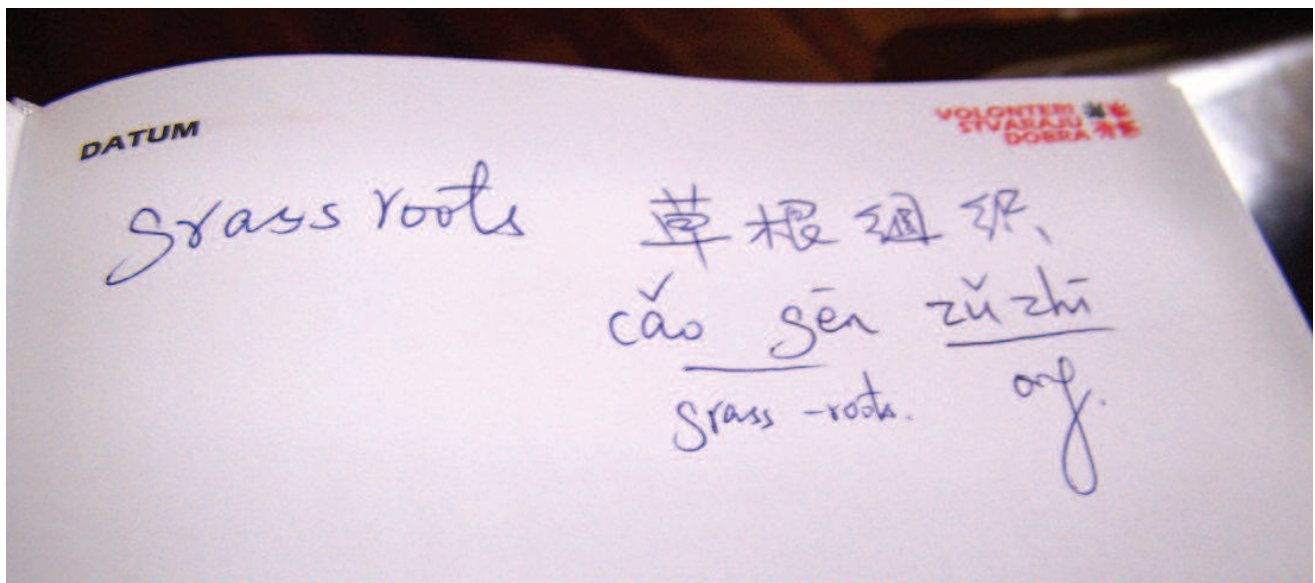 DATUM
VOLONTERI
STVARAJU
DOBRA
grass roots 草根组织、
cǎo gēn zǔ zhī
grass-roots. org.